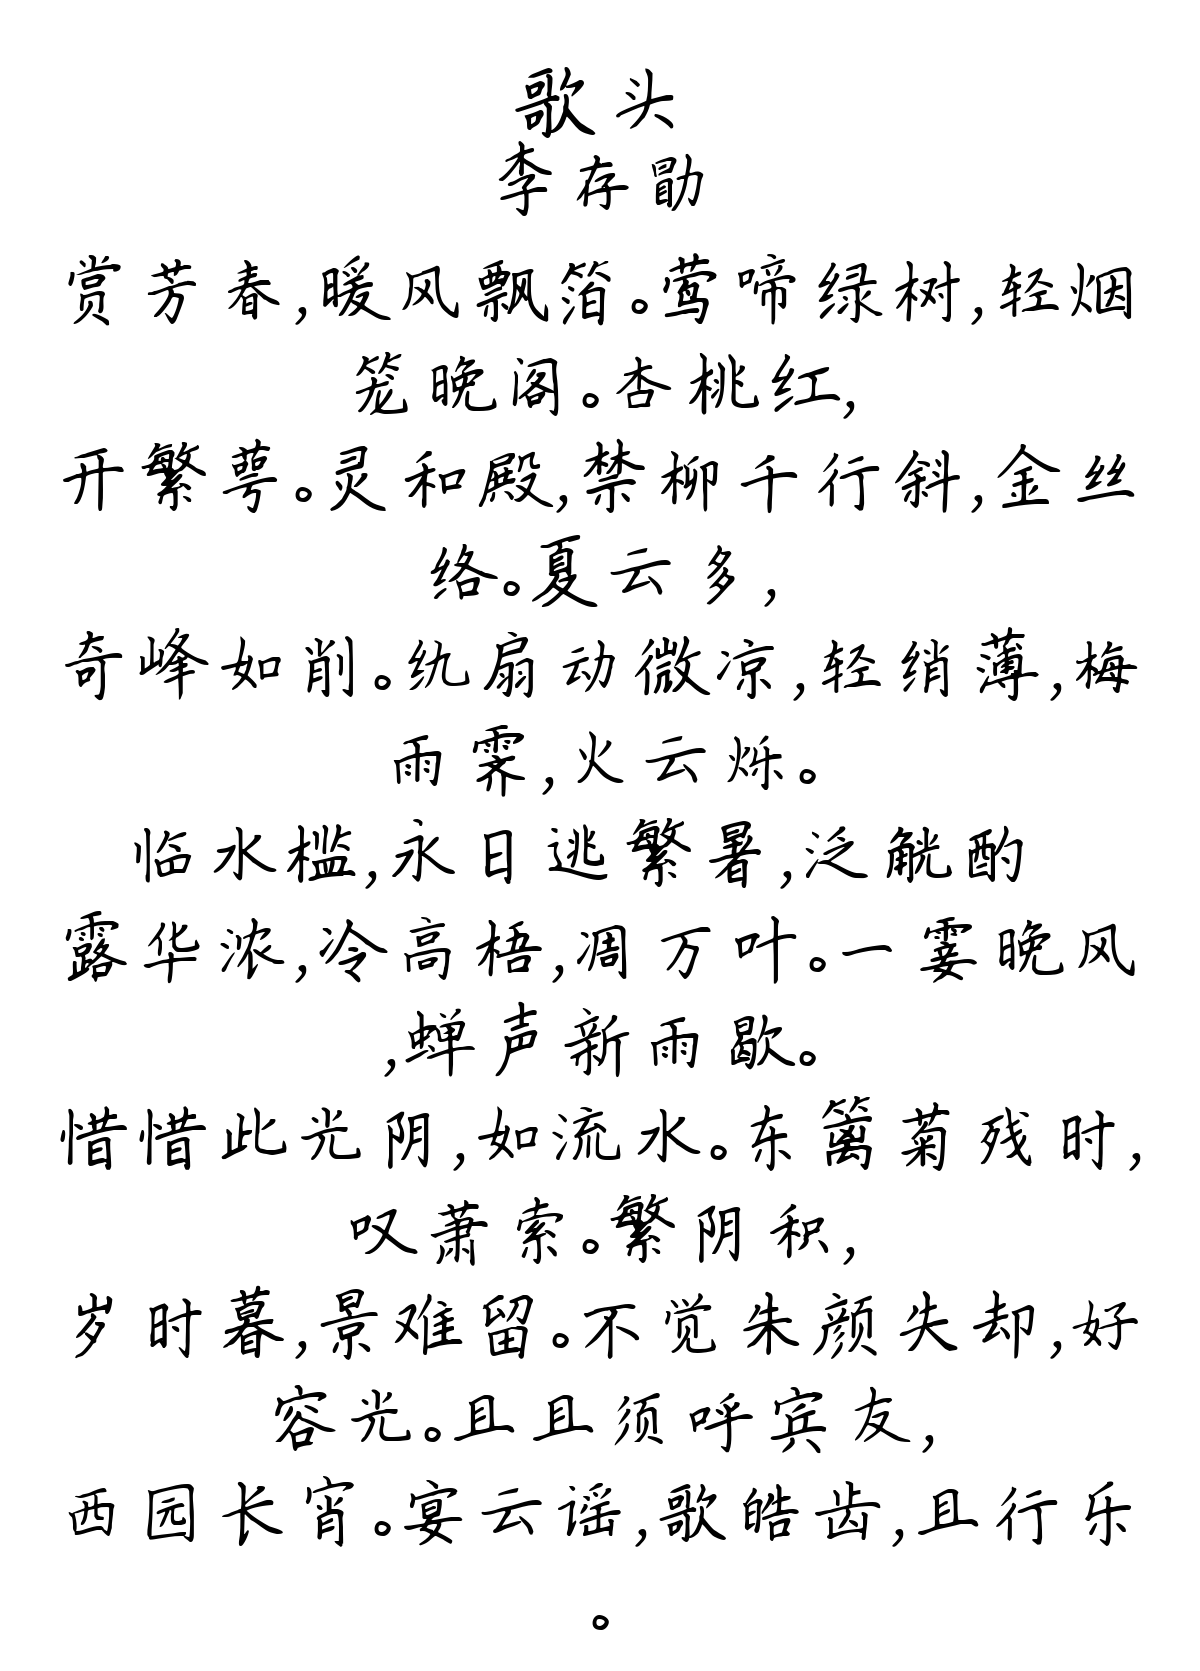 歌头
李存勖
赏芳春,暖风飘箔。莺啼绿树,轻烟
笼晚阁。杏桃红,
开繁萼。灵和殿,禁柳千行斜,金丝
络。夏云多,
奇峰如削。纨扇动微凉,轻绡薄,梅
雨霁,火云烁。
临水槛,永日逃繁暑,泛觥酌
露华浓,冷高梧,凋万叶。一霎晚风
,蝉声新雨歇。
惜惜此光阴,如流水。东篱菊残时,
叹萧索。繁阴积,
岁时暮,景难留。不觉朱颜失却,好
容光。且且须呼宾友,
西园长宵。宴云谣,歌皓齿,且行乐
。